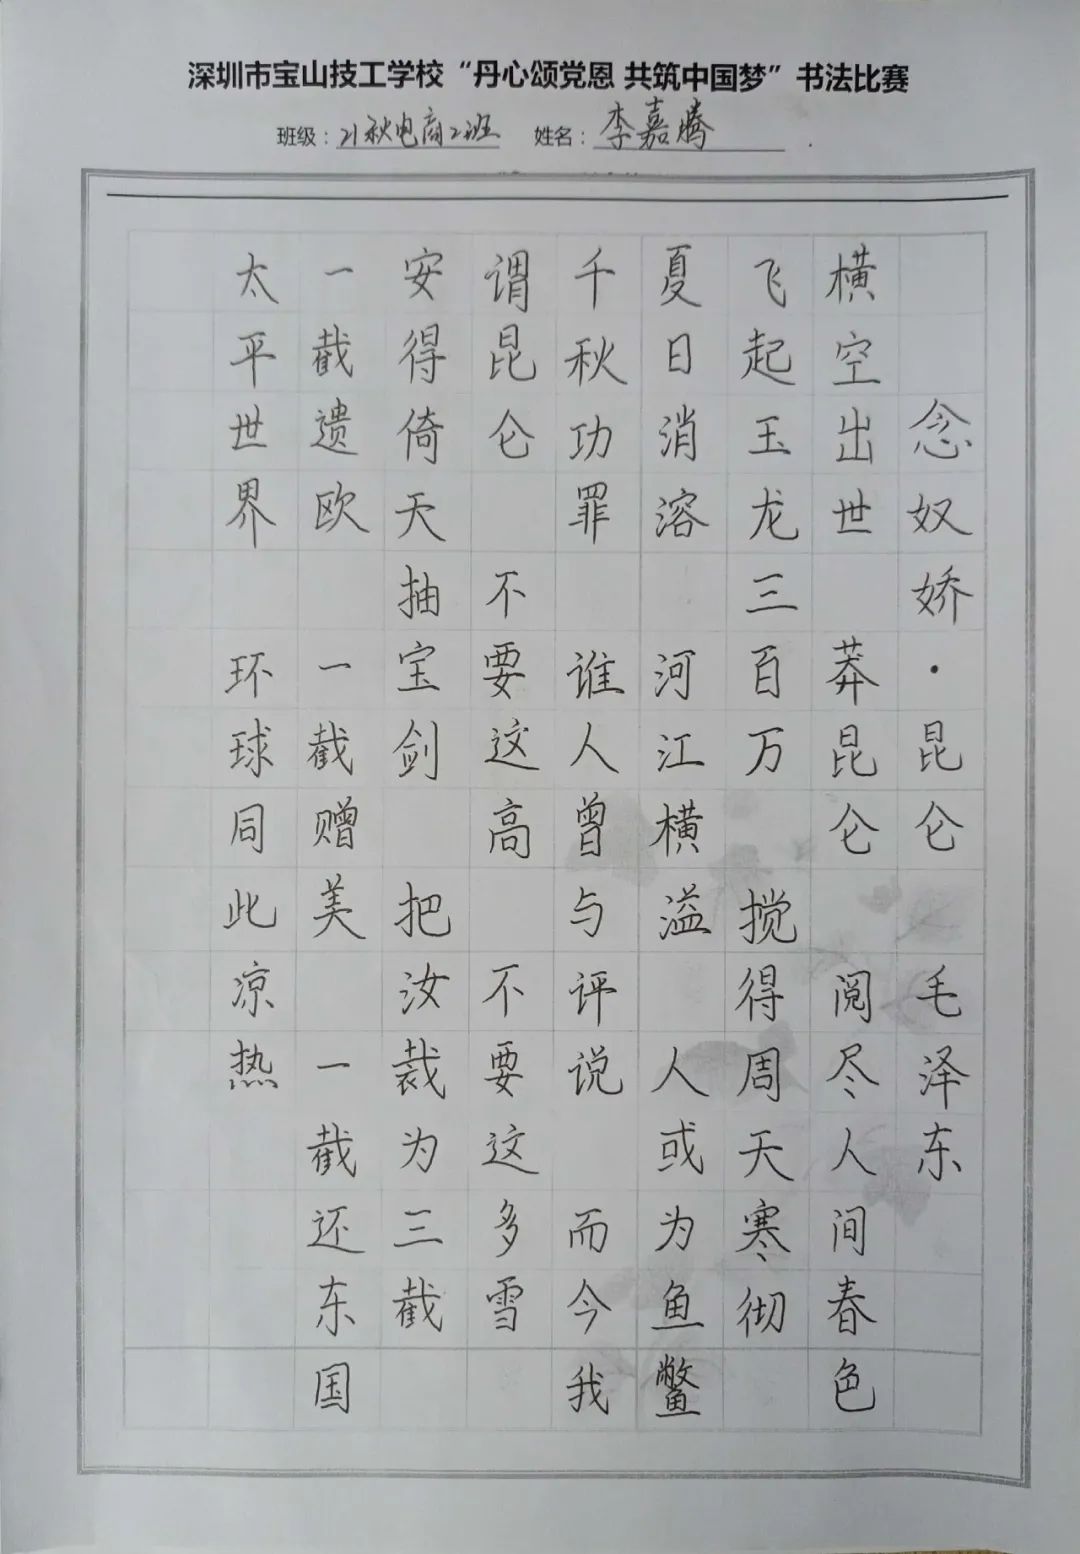 深圳市宝山技工学校“丹心颂党恩 共筑中国梦”书法比赛
班级：21秋电商2班 姓名：李嘉腾
念奴娇·昆仑 毛泽东
横空出世 莽昆仑 阅尽人间春色
飞起玉龙三百万 搅得周天寒彻
夏日消溶 河江横溢 人或为鱼鳖
千秋功罪 谁人曾与评说 而今我
谓昆仑 不要这高 不要这多雪
安得倚天抽宝剑 把汝裁为三截
一截遗欧 一截赠美 一截还东国
太平世界 环球同此凉热